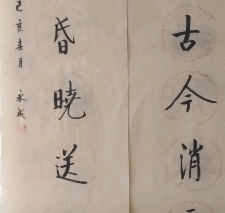 古今消
昏曉送
己亥春月
永成